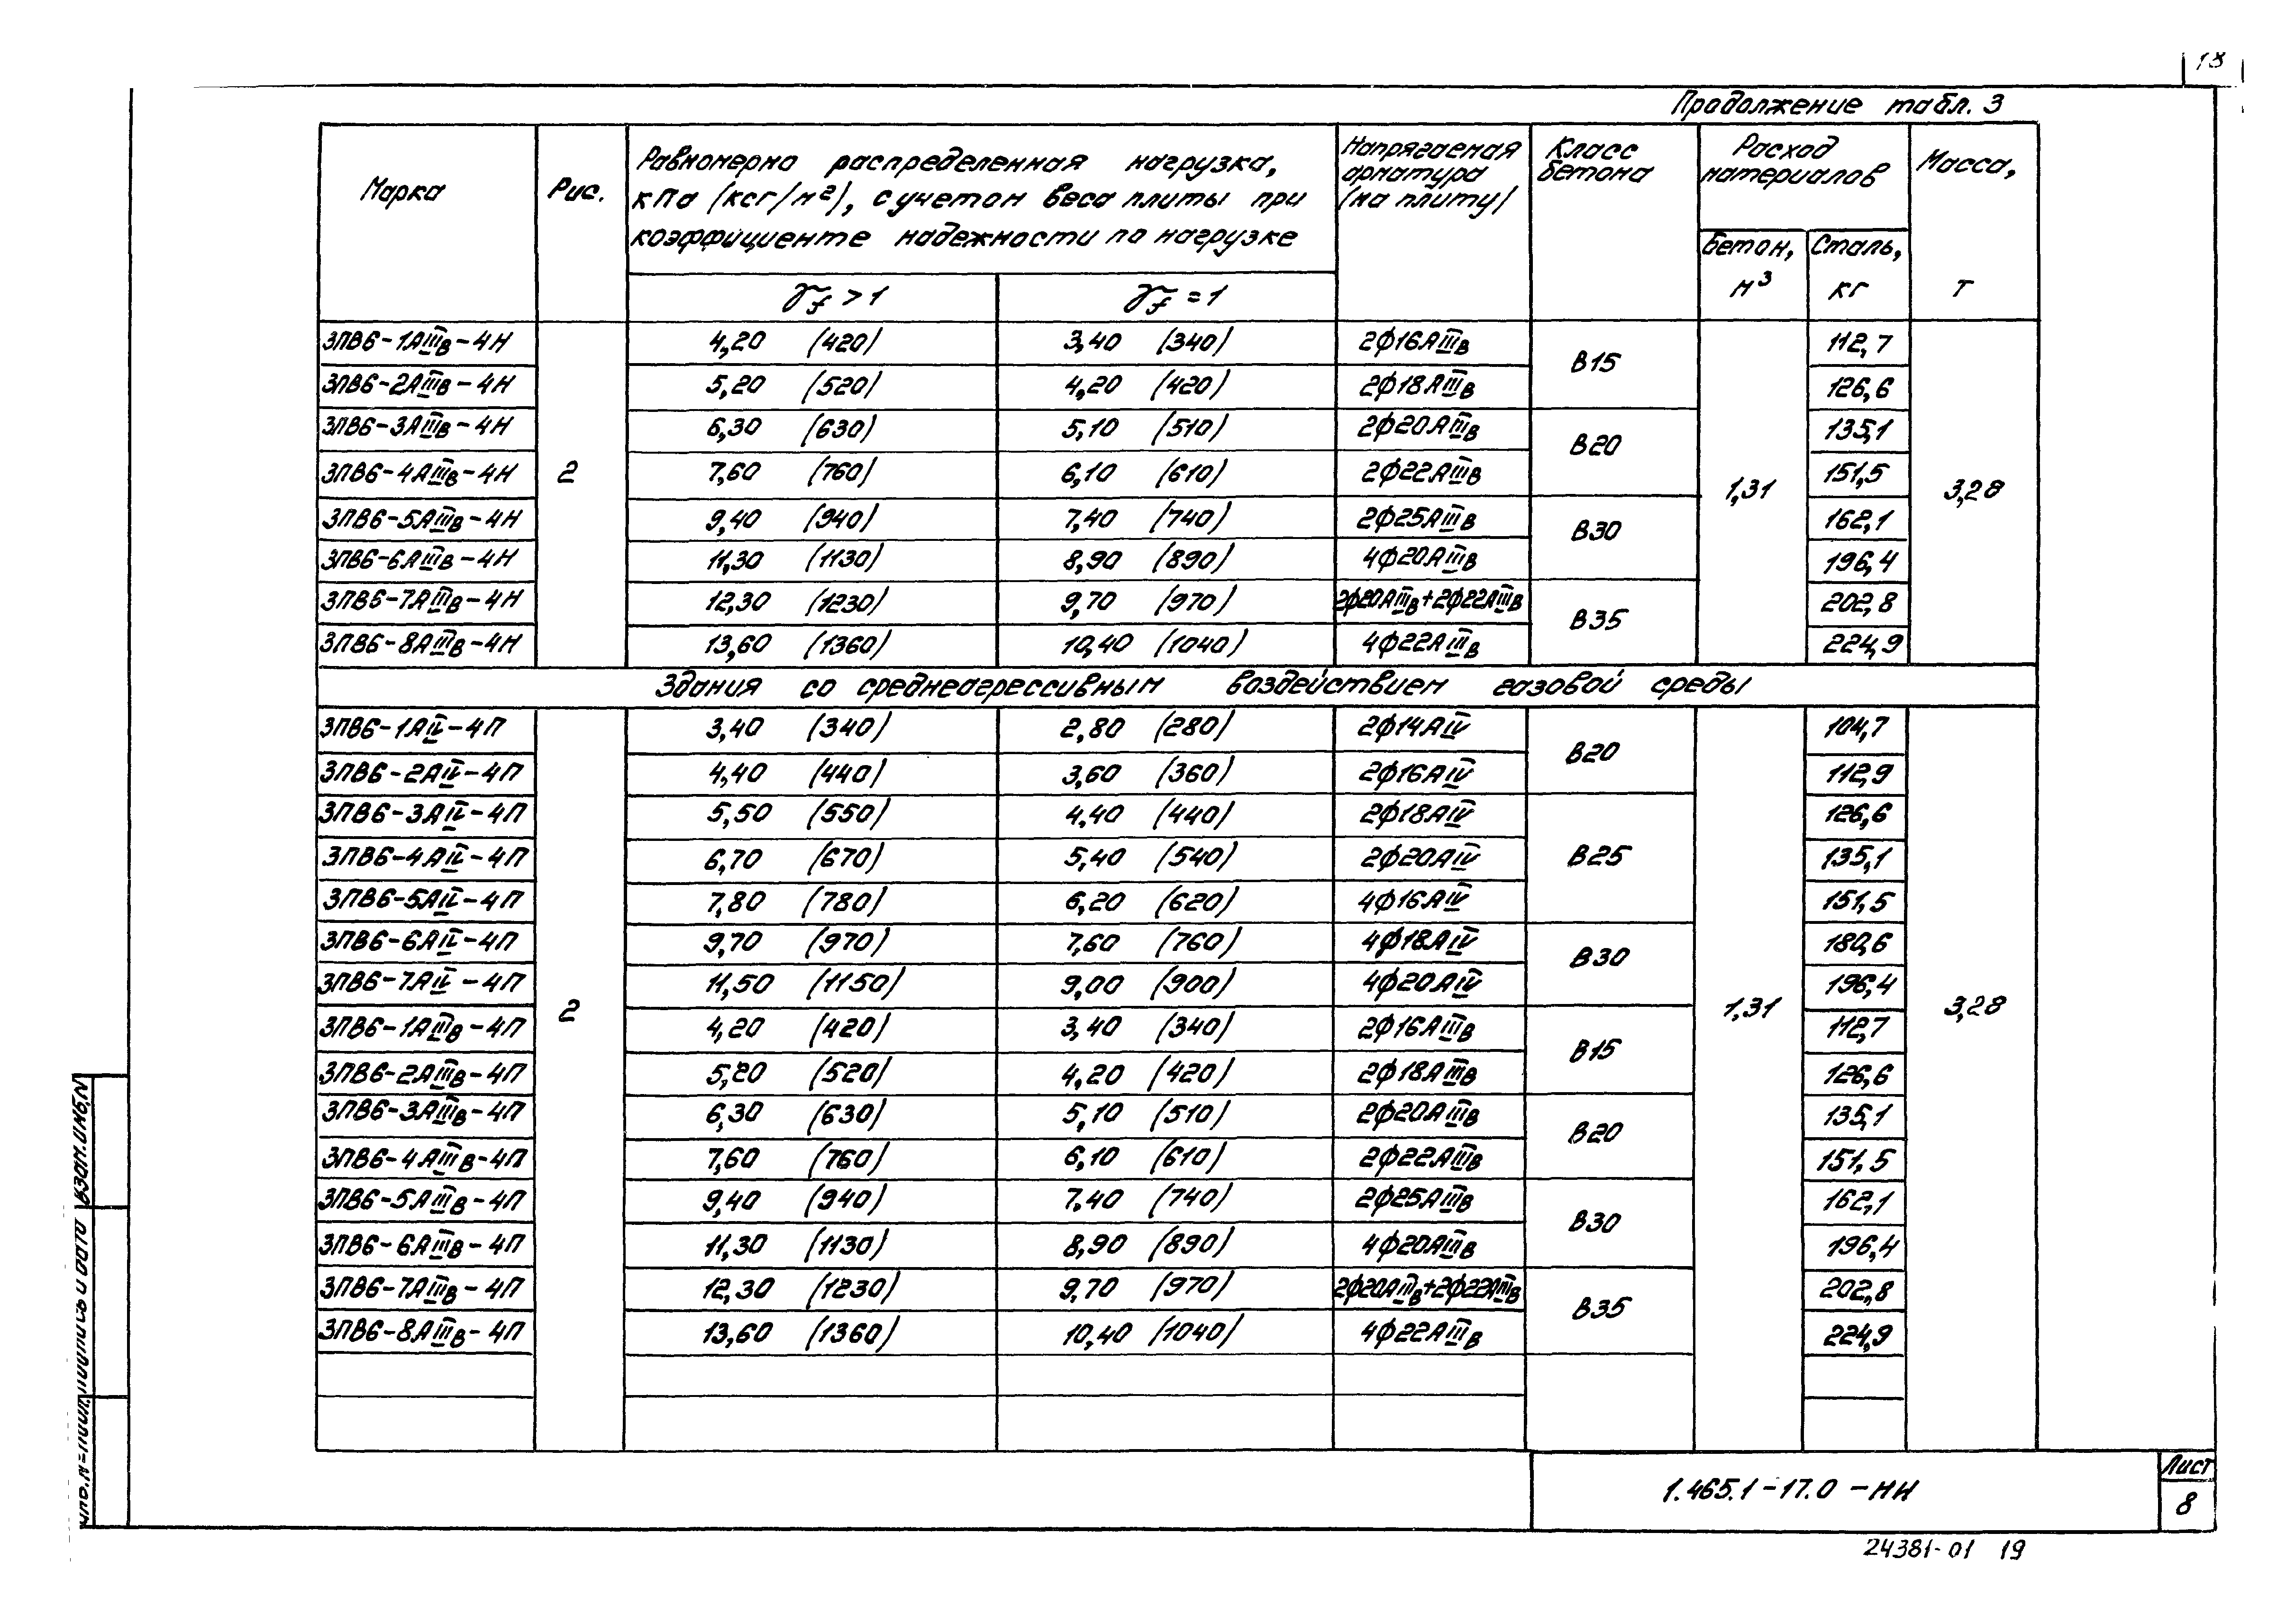 18
Продолжение табл. 3
Марка | Рис. | Равномерно распределенная нагрузка, кПа (кгс/м²), с учетом веса плиты при коэффициенте надежности по нагрузке | Напрягаемая арматура (на плиту) | Класс бетона | Расход материалов | Масса, т
γf > 1 | γf = 1 | Бетон, м³ | Сталь, кг
3ПВ6-1АIIIв-4Н | 2 | 4,20 (420) | 3,40 (340) | 2ф16АIIIв | В15 | 1,31 | 112,7 | 3,28
3ПВ6-2АIIIв-4Н | 5,20 (520) | 4,20 (420) | 2ф18АIIIв | 126,6
3ПВ6-3АIIIв-4Н | 6,30 (630) | 5,10 (510) | 2ф20АIIIв | В20 | 135,1
3ПВ6-4АIIIв-4Н | 7,60 (760) | 6,10 (610) | 2ф22АIIIв | 151,5
3ПВ6-5АIIIв-4Н | 9,40 (940) | 7,40 (740) | 2ф25АIIIв | В30 | 162,1
3ПВ6-6АIIIв-4Н | 11,30 (1130) | 8,90 (890) | 4ф20АIIIв | 196,4
3ПВ6-7АIIIв-4Н | 12,30 (1230) | 9,70 (970) | 2ф20АIIIв+2ф22АIIIв | В35 | 202,8
3ПВ6-8АIIIв-4Н | 13,60 (1360) | 10,40 (1040) | 4ф22АIIIв | 224,9
Здания со среднеагрессивным воздействием газовой среды
3ПВ6-1АIV-4П | 2 | 3,40 (340) | 2,80 (280) | 2ф14АIV | В20 | 1,31 | 104,7 | 3,28
3ПВ6-2АIV-4П | 4,40 (440) | 3,60 (360) | 2ф16АIV | 112,9
3ПВ6-3АIV-4П | 5,50 (550) | 4,40 (440) | 2ф18АIV | В25 | 126,6
3ПВ6-4АIV-4П | 6,70 (670) | 5,40 (540) | 2ф20АIV | 135,1
3ПВ6-5АIV-4П | 7,80 (780) | 6,20 (620) | 4ф16АIV | 151,5
3ПВ6-6АIV-4П | 9,70 (970) | 7,60 (760) | 4ф18АIV | В30 | 180,6
3ПВ6-7АIV-4П | 11,50 (1150) | 9,00 (900) | 4ф20АIV | 196,4
3ПВ6-1АIIIв-4П | 4,20 (420) | 3,40 (340) | 2ф16АIIIв | В15 | 112,7
3ПВ6-2АIIIв-4П | 5,20 (520) | 4,20 (420) | 2ф18АIIIв | 126,6
3ПВ6-3АIIIв-4П | 6,30 (630) | 5,10 (510) | 2ф20АIIIв | В20 | 135,1
3ПВ6-4АIIIв-4П | 7,60 (760) | 6,10 (610) | 2ф22АIIIв | 151,5
3ПВ6-5АIIIв-4П | 9,40 (940) | 7,40 (740) | 2ф25АIIIв | В30 | 162,1
3ПВ6-6АIIIв-4П | 11,30 (1130) | 8,90 (890) | 4ф20АIIIв | 196,4
3ПВ6-7АIIIв-4П | 12,30 (1230) | 9,70 (970) | 2ф20АIIIв+2ф22АIIIв | В35 | 202,8
3ПВ6-8АIIIв-4П | 13,60 (1360) | 10,40 (1040) | 4ф22АIIIв | 224,9
Инв.№ подл. Подпись и дата Взам.инв.№
1.465.1-17.0 -НИ
Лист
8
24381-01 19